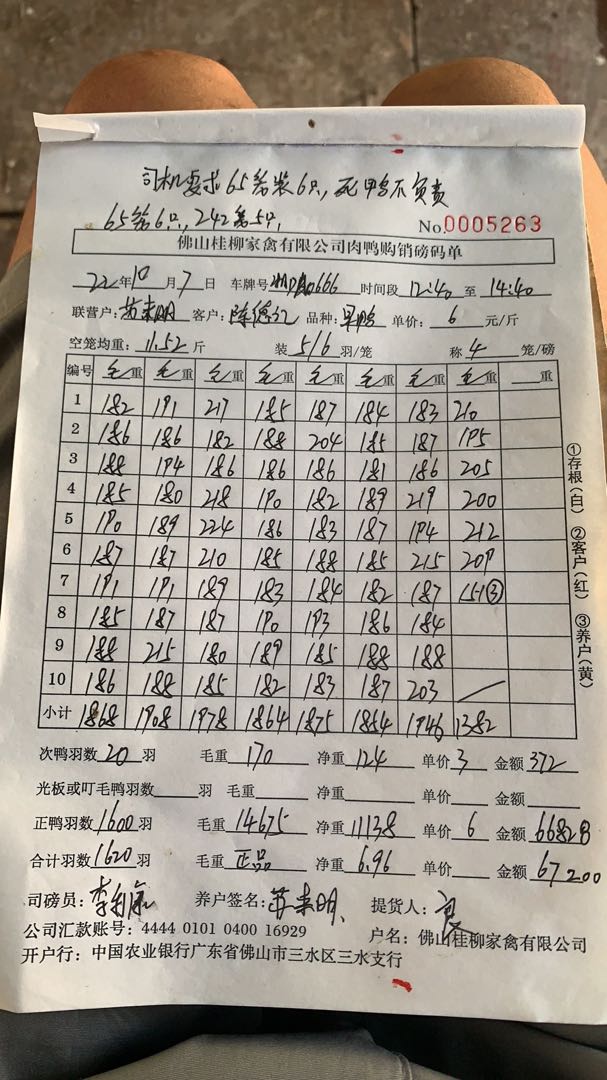 司机要求65笼装6只,死鸭不负责
65笼6只,242笼5只,
No.0005263
佛山桂柳家禽有限公司肉鸭购销磅码单
22年10月7日 车牌号 666 时间段 12:40 至 14:40
联营户:苏来明 客户:陈德江 品种: 单价: 6 元/斤
空笼均重: 11.52 斤 装 5/6 羽/笼 称 4 笼/磅
编号 毛重 毛重 毛重 毛重 毛重 毛重 毛重 毛重 重
1 182 191 217 185 187 184 183 210
2 186 186 182 188 204 185 187 195
3 188 194 186 186 186 181 186 205
4 185 180 218 190 182 189 219 200
5 190 189 224 186 183 187 194 212
6 187 187 210 185 188 185 215 209
7 191 191 189 183 184 182 187 151③
8 185 187 187 190 193 186 184
9 188 215 180 189 185 188 188
10 186 188 185 182 183 187 203
小计 1868 1908 1978 1864 1875 1854 1946 1382
次鸭羽数 20 羽 毛重 170 净重 124 单价 3 金额 372
光板或叮毛鸭羽数 羽 毛重 净重 单价 金额
正鸭羽数 1600 羽 毛重 14675 净重 11138 单价 6 金额 66828
合计羽数 1620 羽 毛重 正品 净重 6.96 单价 金额 67200
司磅员: 养户签名:苏来明 提货人:
公司汇款账号:4444 0101 0400 16929 户名:佛山桂柳家禽有限公司
开户行:中国农业银行广东省佛山市三水区三水支行
①存根(白) ②客户(红) ③养户(黄)